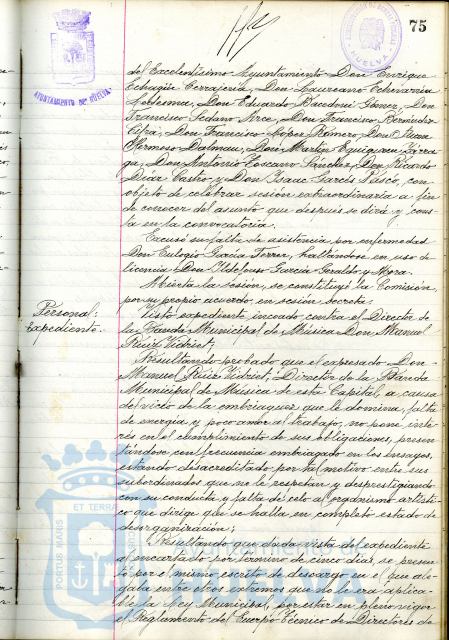 75
AYUNTAMIENTO DE HUELVA
HUELVA
del Excelentísimo Ayuntamiento Don Enrique
Echagüe Cerrajería, Don Laureano Echevarría
Ledesma, Don Eduardo Don
Francisco Sedano Arce, Don Francisco Bernández
Don Francisco López Romero Don Juan
Hermoso Dalmau, Don Martín
Don Antonio Toscano Sánchez, Don Ricardo
Díaz Castro y Don Isaac García Pascó, con
objeto de celebrar sesión extraordinaria a fin
de conocer del asunto que después se dirá y cons-
ta en la convocatoria.
Excusó su falta de asistencia por enfermedad
Don Eulogio García Ferrer, hallándose en uso de
licencia, Don Ildefonso García Geraldo y Mora.
Abierta la sesión, se constituyó la Comisión,
por su propio acuerdo en sesión secreta.
Personal:
Expediente.
Visto expediente incoado contra el Director de
la Banda Municipal de Música Don Manuel
Ruiz Vidriet;
Resultando probado que el expresado Don
Manuel Ruiz Vidriet, Director de la Banda
Municipal de Música de esta Capital, a causa
del vicio de la embriaguez que le domina, falta
de energía y poco amor al trabajo, no pone inte-
rés en el cumplimiento de sus obligaciones, presen-
tándose con frecuencia embriagado en los ensayos,
estando desacreditado por tal motivo entre sus
subordinados que no le respetan y desprestigiando
con su conducta y falta de celo al organismo artísti-
co que dirige que se halla en completo estado de
desorganización;
Resultando que dada vista del expediente
al encartado por término de cinco días, se presen-
tó por el mismo escrito de descargo, en el que ale-
gaba entre otros extremos que no le era aplica-
ble la Ley Municipal, por estar en pleno vigor
el Reglamento del Cuerpo Técnico de Directores de
PORTUS MARIS ET TERRAE
Ayuntamiento de